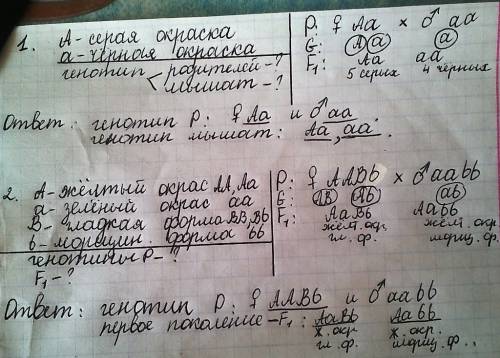 1. А - серая окраска
а - чёрная окраска
генотип родителей - ?
мышат - ?
P: ♀ Аа × ♂ аа
G: А а а
F₁: Аа аа
5 серых 4 чёрных
Ответ: генотип P: ♀ Аа и ♂ аа
генотип мышат: Аа, аа.
2. А - жёлтый окрас АА, Аа
а - зелёный окрас аа
В - гладкая форма ВВ, Вb
b - морщин. форма bb
генотипы P - ?
F₁ - ?
P: ♀ ААВb × ♂ ааbb
G: АВ Аb аb
F₁: АаВb Ааbb
жёлт. окр. жёлт. окр.
гл. ф. морщ. ф.
Ответ: генотип P: ♀ ААВb и ♂ ааbb
первое поколение - F₁: АаВb Ааbb
ж. окр. ж. окр.
гл. ф. морщ. ф.